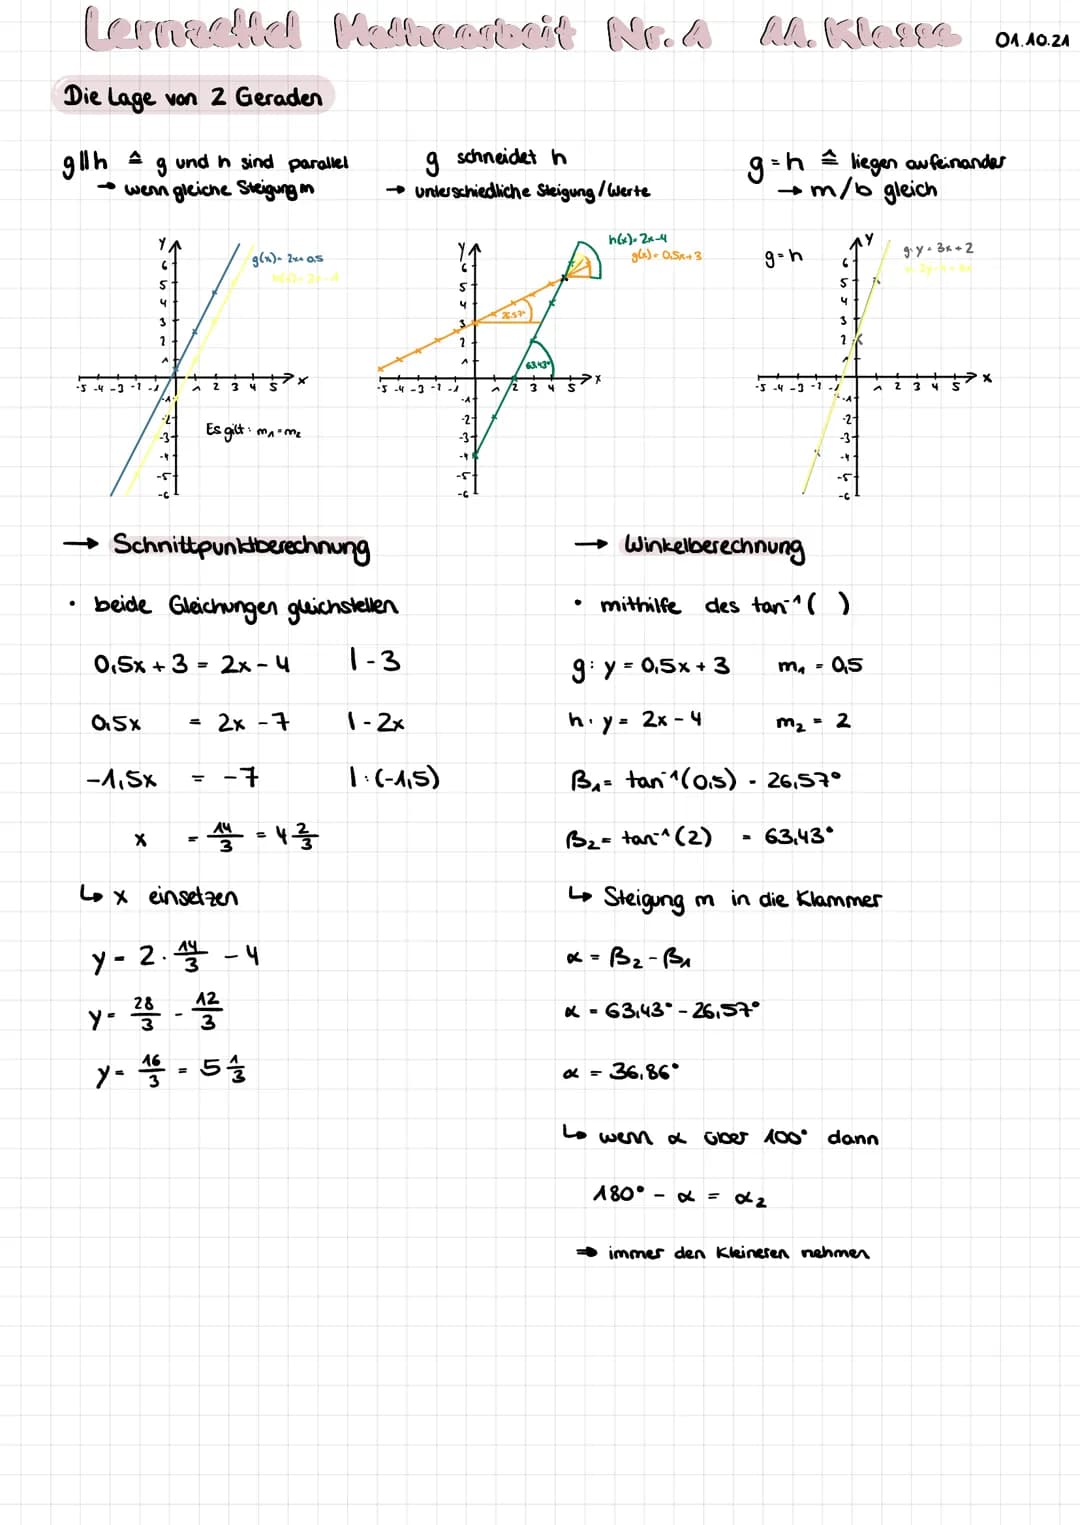 Lernzettel Mathearbeit Nr. 1 11. Klasse 01.10.21
Die Lage von 2 Geraden
g||h ≙ g und h sind parallel
→ wenn gleiche Steigung m
g schneidet h
→ unterschiedliche Steigung / Werte
g = h ≙ liegen aufeinander
→ m/b gleich
g(x) = 2x + 0,5
Es gilt: m₁ = m₂
h(x) = 2x-4
g(x) = 0,5x+3
26,57°
63,43°
g = h
g: y = 3x + 2
→ Schnittpunktberechnung
• beide Gleichungen gleichstellen
0,5x + 3 = 2x - 4 | - 3
0,5x = 2x - 7 | - 2x
-1,5x = -7 | : (-1,5)
x = 14/3 = 4 2/3
↳ x einsetzen
y = 2 · 14/3 - 4
y = 28/3 - 12/3
y = 16/3 = 5 1/3
→ Winkelberechnung
• mithilfe des tan⁻¹( )
g: y = 0,5x + 3 m₁ = 0,5
h: y = 2x - 4 m₂ = 2
β₁ = tan⁻¹(0,5) = 26,57°
β₂ = tan⁻¹(2) = 63,43°
↳ Steigung m in die Klammer
α = β₂ - β₁
α = 63,43° - 26,57°
α = 36,86°
↳ wenn α über 100° dann
180° - α = α₂
⇒ immer den Kleineren nehmen